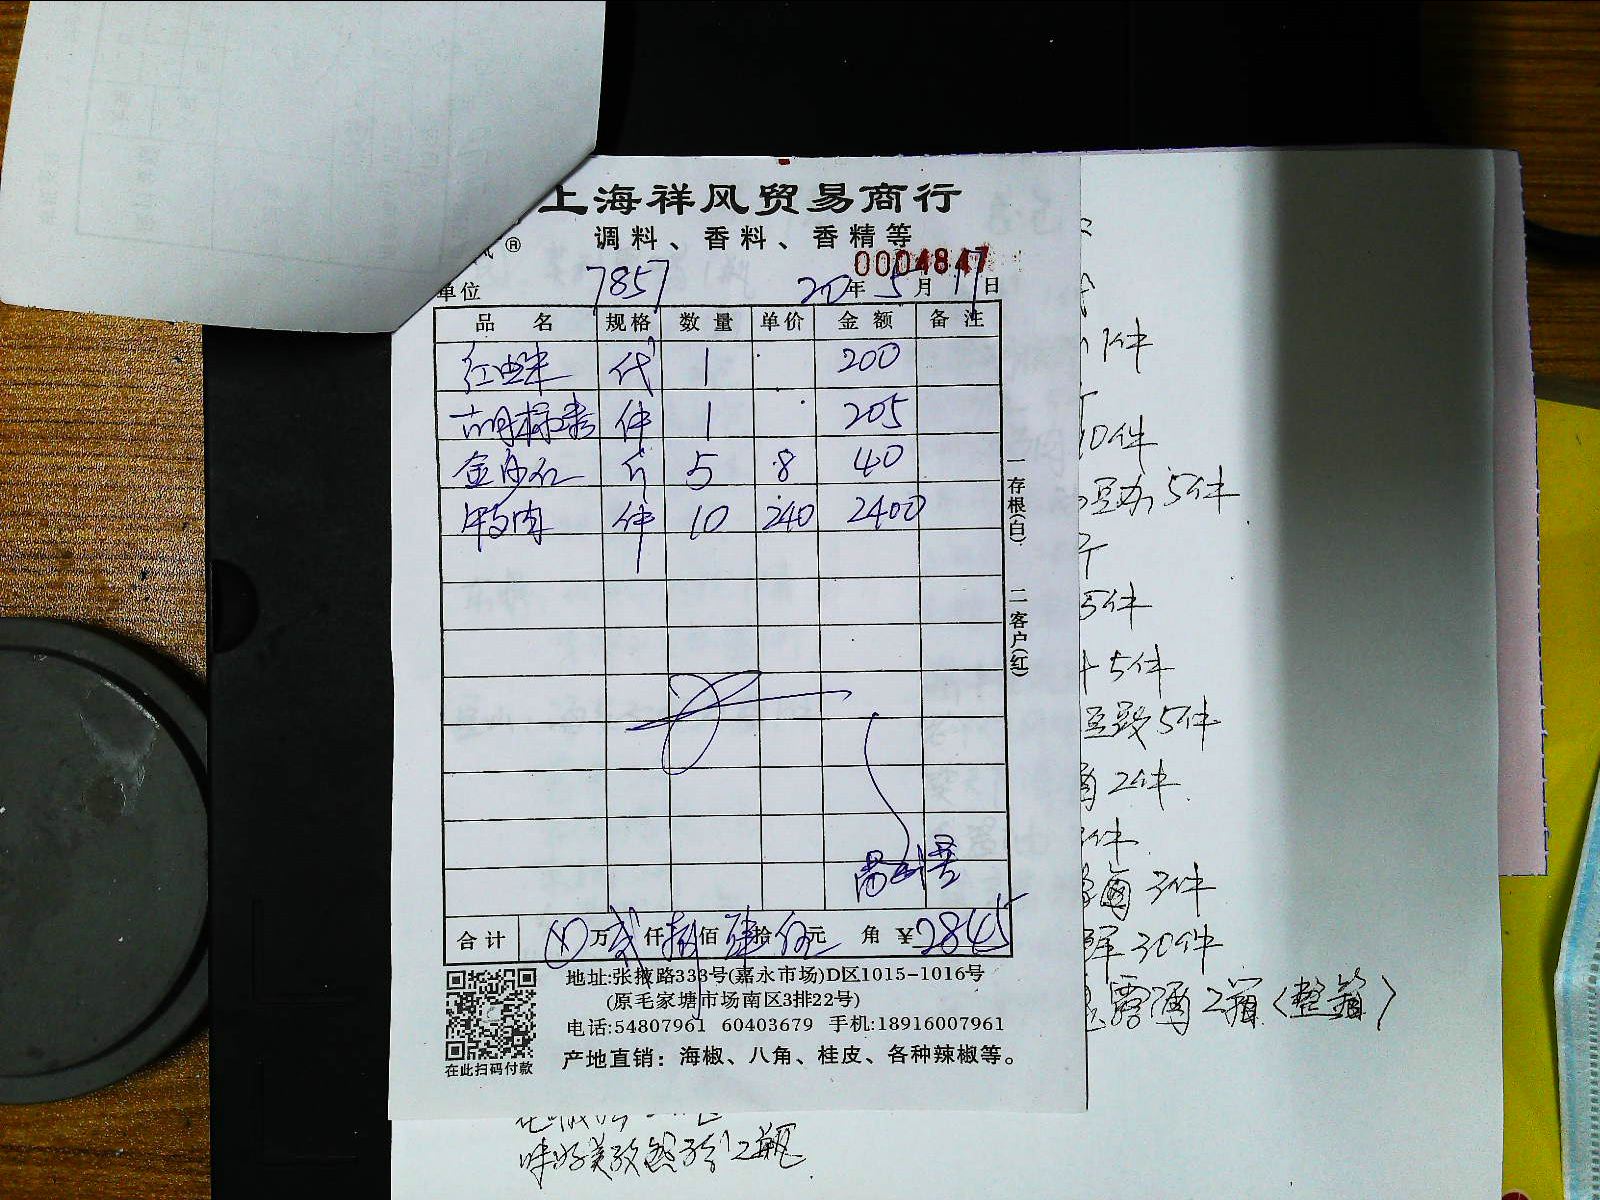 上海祥风贸易商行
®
调料、香料、香精等
0004847
单位 7857 20年5月17日
品名 规格 数量 单价 金额 备注
红曲米 代 1 200
胡椒 件 1 205
金沙 斤 5 8 40
鸭肉 件 10 240 2400
一存根(白) 二客户(红)
合计 万贰仟捌佰肆拾伍元 角 ¥2845
地址:张掖路333号(嘉永市场)D区1015-1016号
(原毛家塘市场南区3排22号)
电话:54807961 60403679 手机:18916007961
在此扫码付款
产地直销：海椒、八角、桂皮、各种辣椒等。
1件
10件
豆办 5件
斤
5件
5件
豆豉 5件
2件
件
卤 3件
30件
露酒 2箱(整箱)
味好美 2瓶